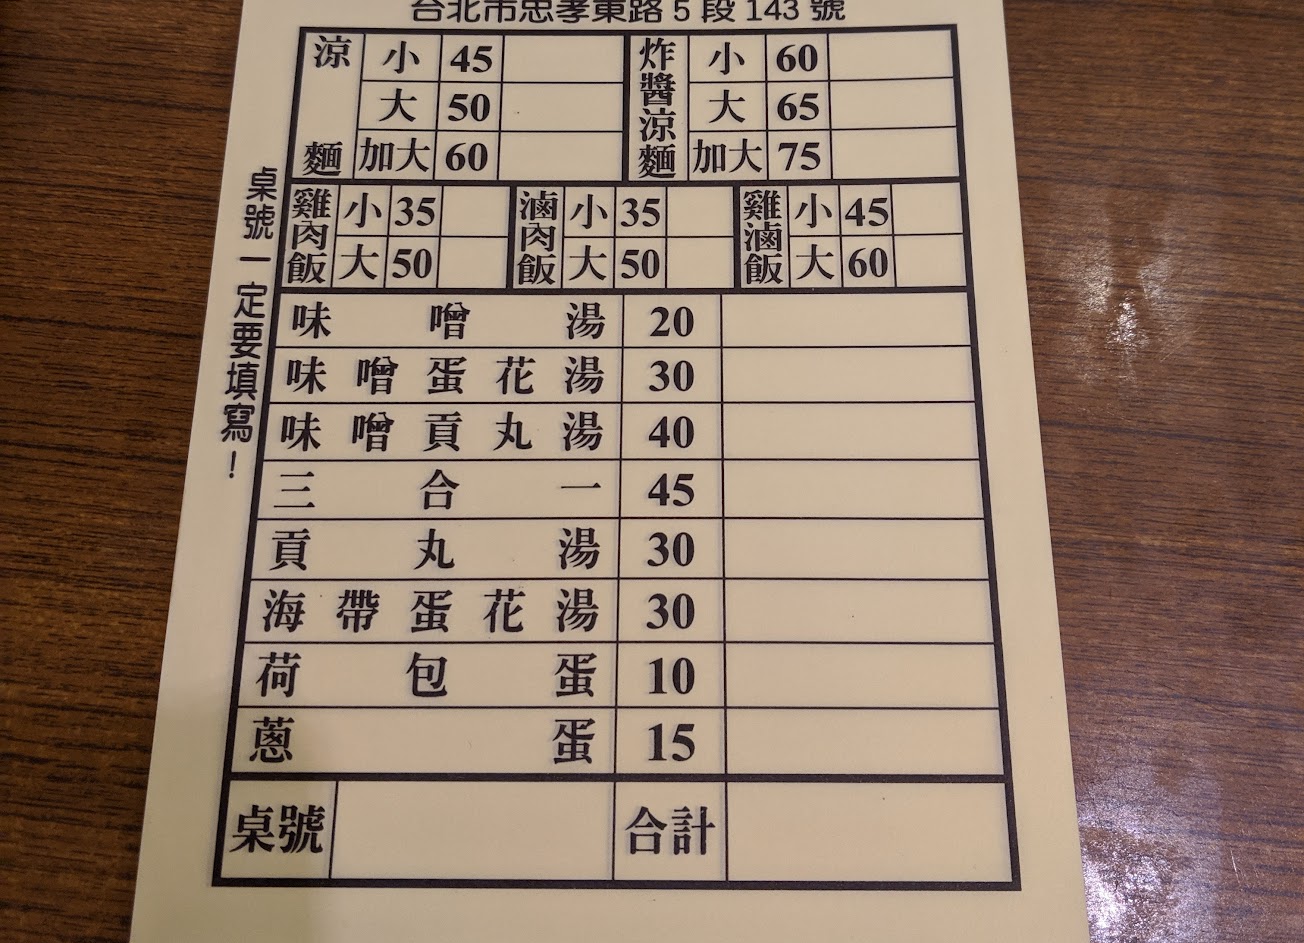 台北市忠孝東路5段143號
涼麵 小 45
大 50
加大 60
炸醬涼麵 小 60
大 65
加大 75
雞肉飯 小 35
大 50
滷肉飯 小 35
大 50
雞滷飯 小 45
大 60
味噌湯 20
味噌蛋花湯 30
味噌貢丸湯 40
三合一 45
貢丸湯 30
海帶蛋花湯 30
荷包蛋 10
蔥蛋 15
桌號 合計
桌號一定要填寫！